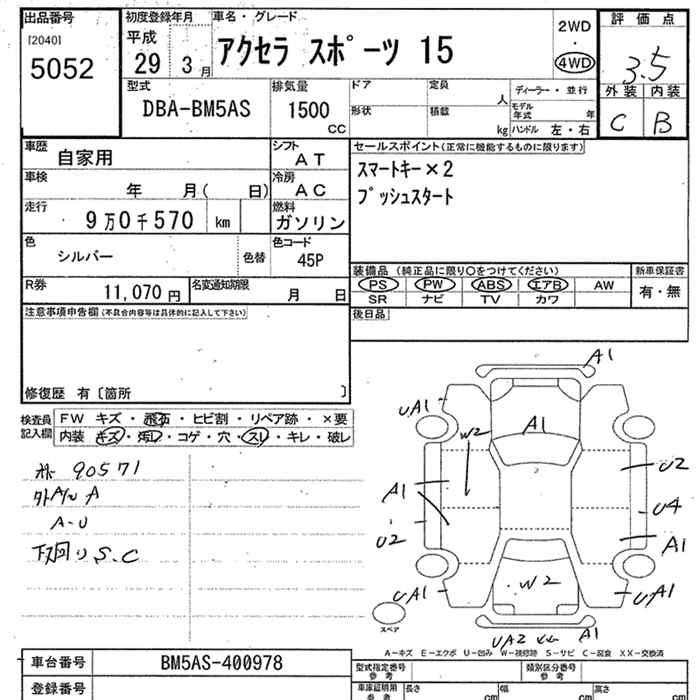 出品番号
[2040]
5052
初度登録年月
平成
29 3月
車名・グレード
アクセラ スポーツ 15
2WD
・
4WD
評価点
3.5
外装 内装
C B
型式
DBA-BM5AS
排気量
1500
CC
ドア
定員
人
形状
積載
kg
ディーラー・並行
モデル年式 年
ハンドル 左・右
車歴
自家用
シフト
AT
セールスポイント(正常に機能するものに限ります)
スマートキー×2
プッシュスタート
車検
年 月( 日)
冷房
AC
走行
9万0千570 km
燃料
ガソリン
色
シルバー
色替
色コード
45P
装備品 (純正品に限り〇をつけてください)
新車保証書
PS PW ABS エアB AW
有・無
SR ナビ TV カワ
R券
11,070円
名変通知期限
月 日
後日品
注意事項申告欄(不具合内容等は具体的に記入して下さい)
修復歴 有〔箇所 〕
検査員記入欄
FW キズ・飛石・ヒビ割・リペア跡・×要
内装 キズ・汚レ・コゲ・穴・スレ・キレ・破レ
90571
A
A-U
下回り S.C
A1
UA1
W2
A1
U2
A1
U4
U2
A1
UA1
W2
UA1
UA2
A1
スペア
A-キズ E-エクボ U-凹み W-補修跡 S-サビ C-腐食 XX-交換済
車台番号
BM5AS-400978
登録番号
型式指定番号
参考
類別区分番号
参考
車庫証明用
参考
長さ cm
幅 cm
高さ cm